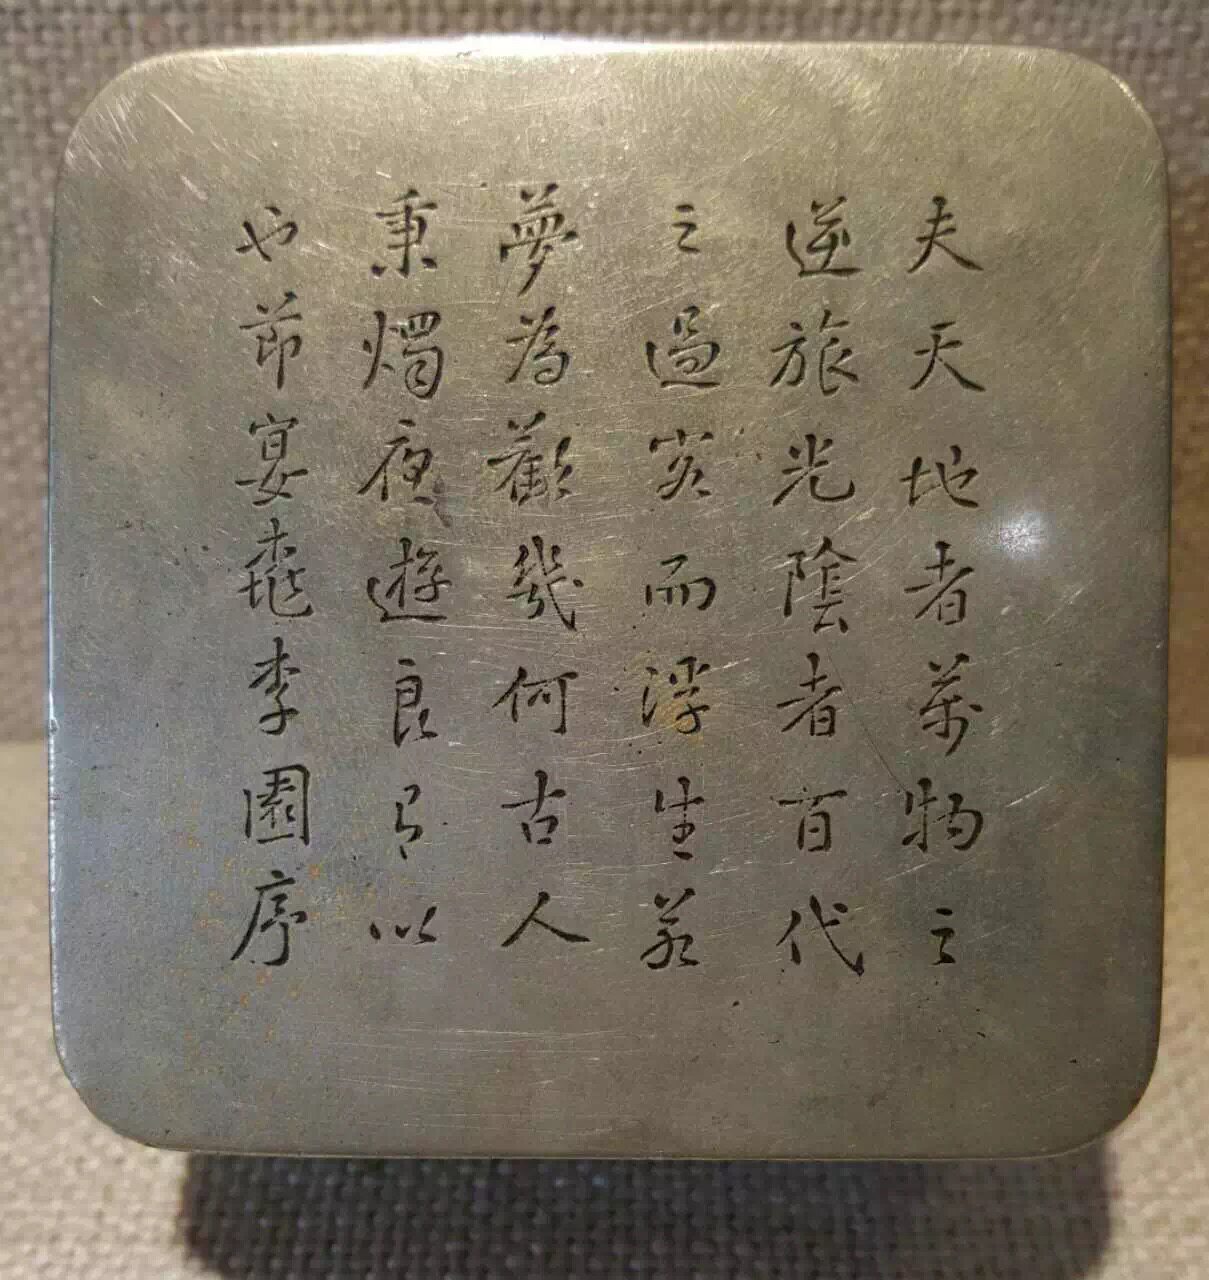 夫天地者萬物之
逆旅光陰者百代
之過客而浮生若
夢為歡幾何古人
秉燭夜遊良有以
也節宴桃李園序